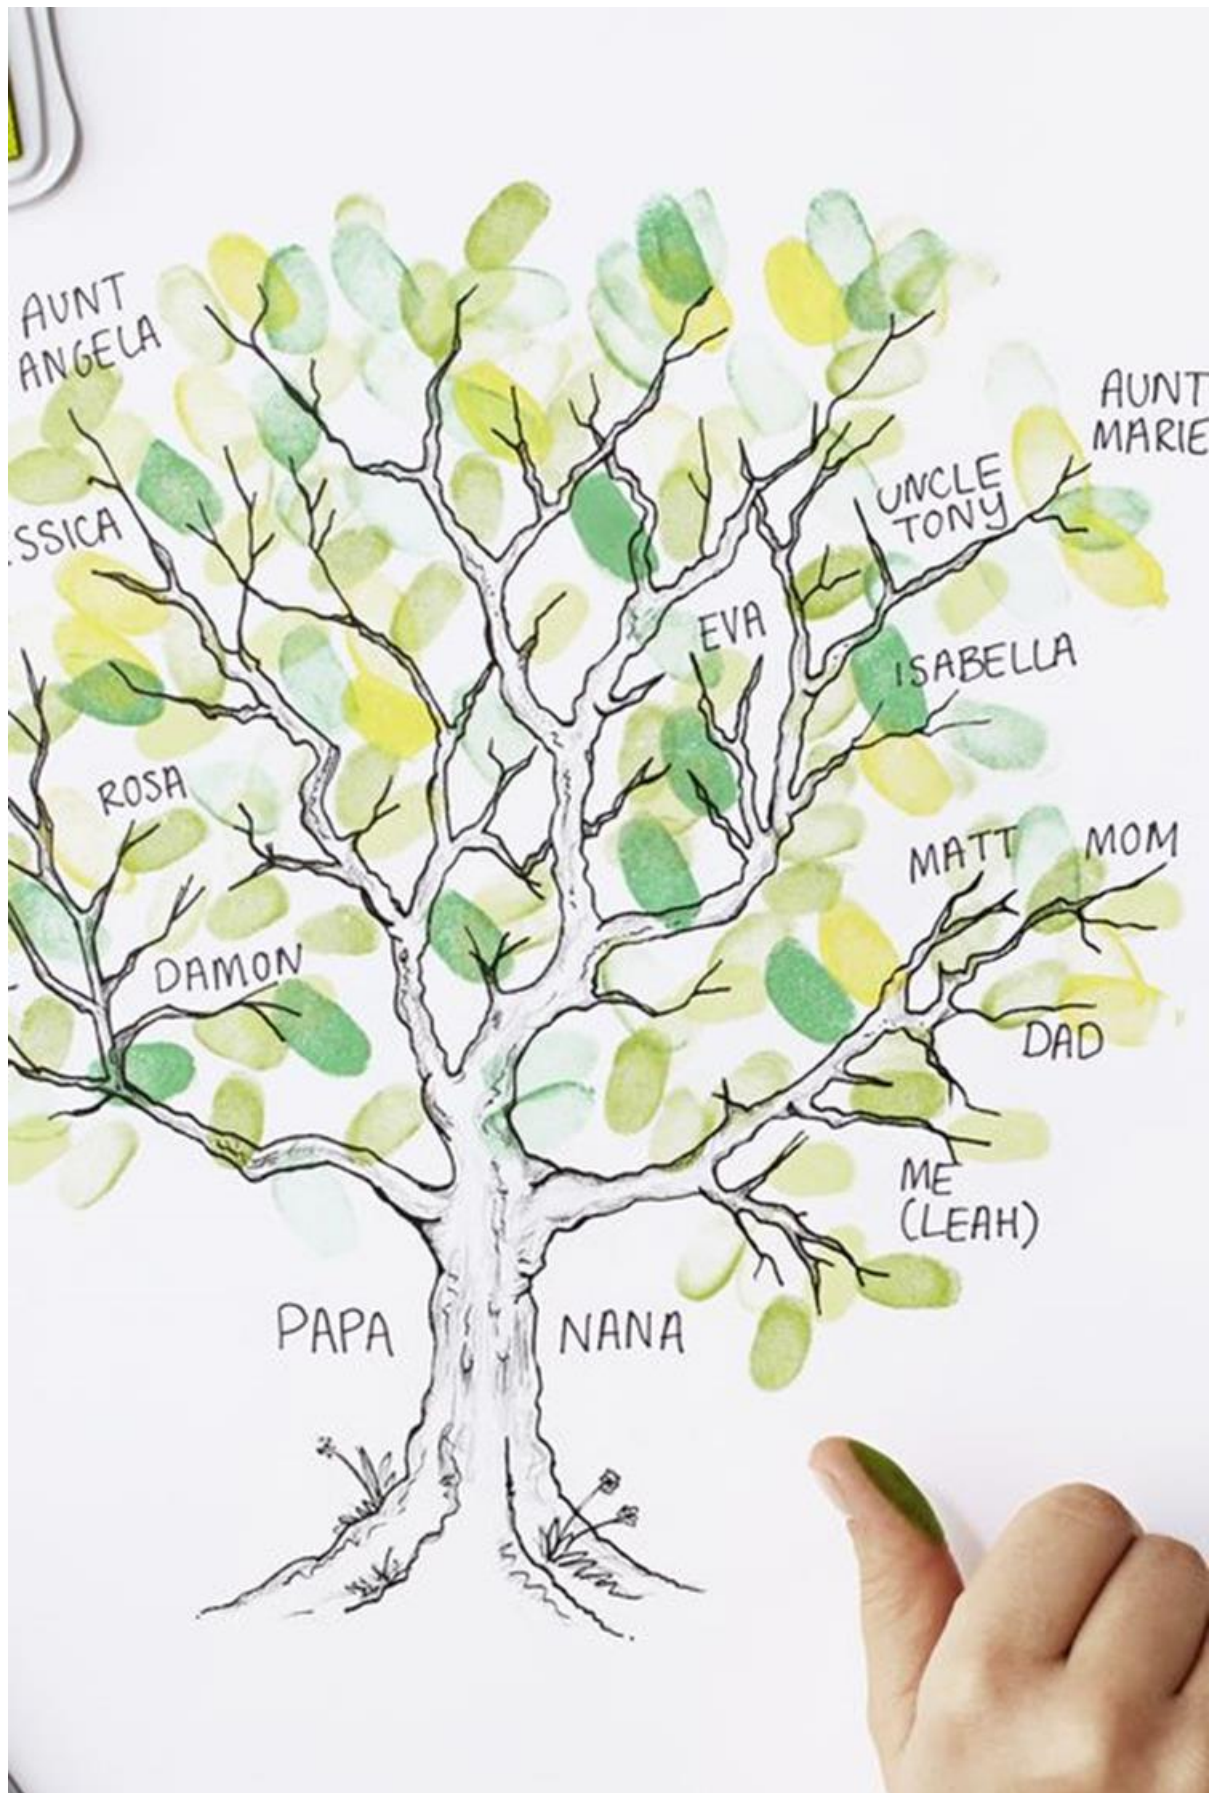 AUNT
ANGELA
AUNT
MARIE
UNCLE
TONY
SSICA
EVA
ISABELLA
ROSA
MATT
MOM
DAMON
DAD
ME
(LEAH)
PAPA
NANA